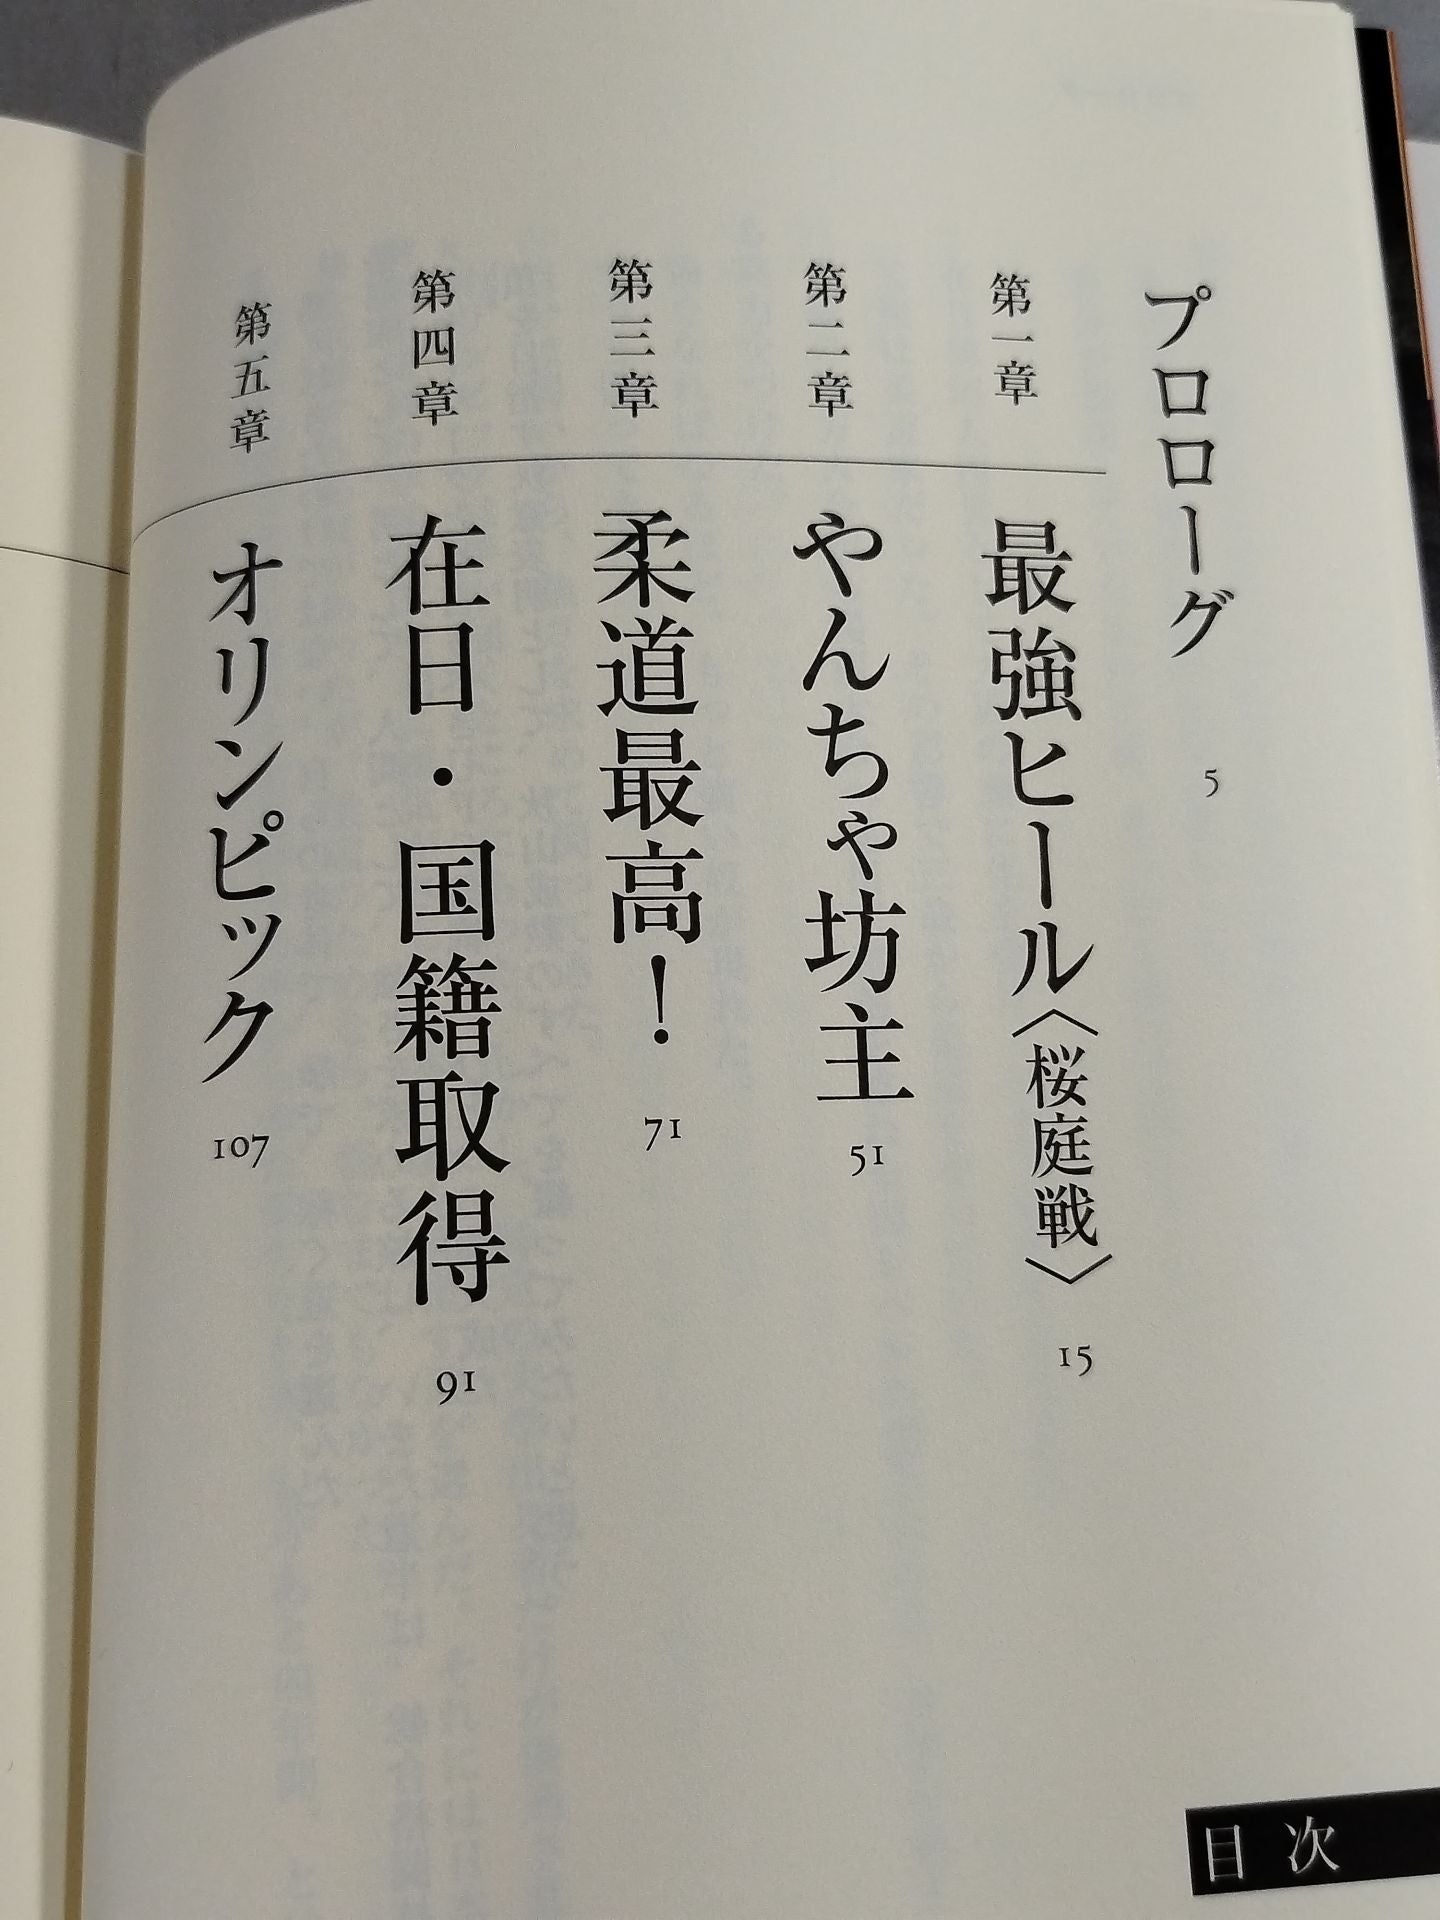 プロローグ 5
第一章 最強ヒール〈桜庭戦〉 15
第二章 やんちゃ坊主 51
第三章 柔道最高! 71
第四章 在日・国籍取得 91
第五章 オリンピック 107
目次